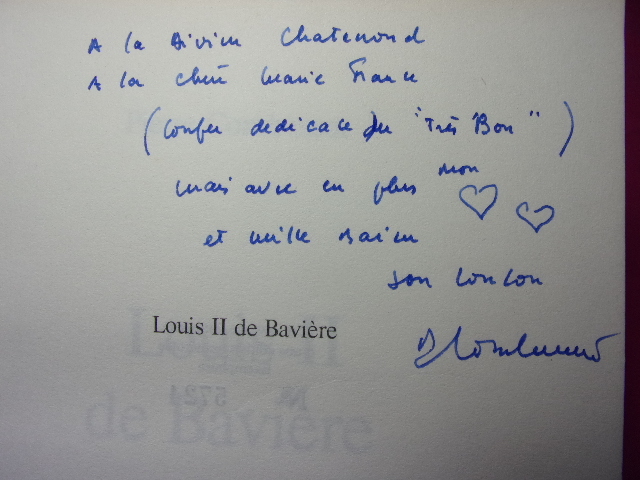 A la Divine Chatenond
A la chère Marie France
(Confer dedicace du "Très Bon")
mais avec en plus mon
et mille
son Loulou
Louis II de Bavière